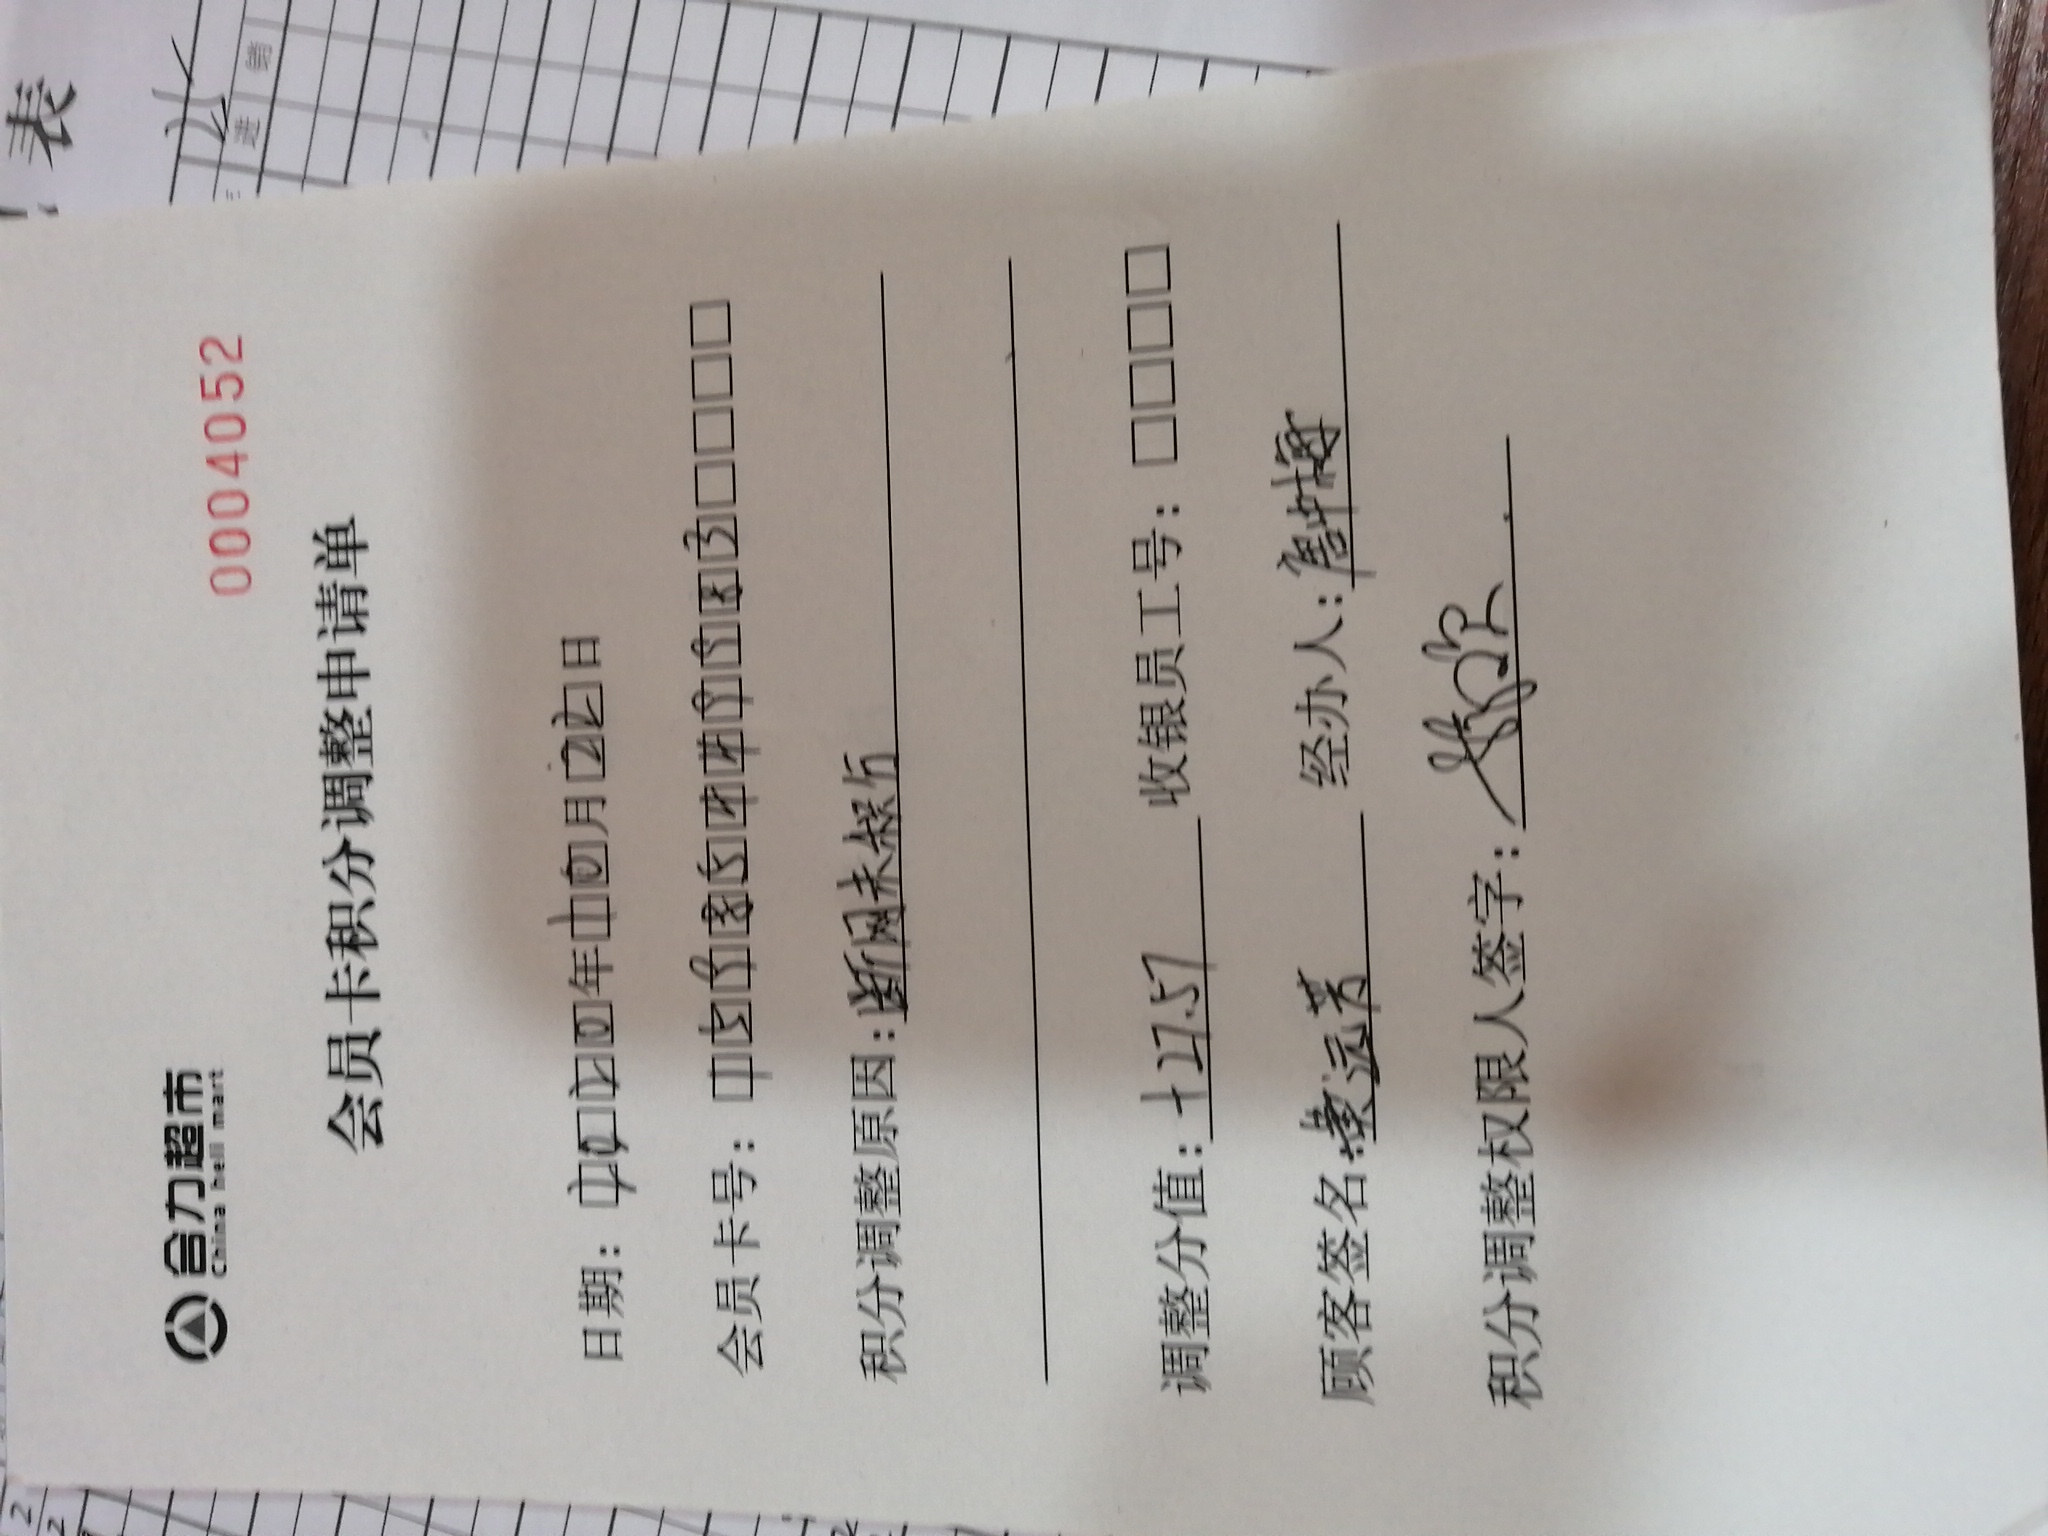 合力超市
China heli mart
0004052
会员卡积分调整申请单
日期：2020年10月22日
会员卡号：15985449983□□□□
积分调整原因：断网未积分
调整分值：+27.57 收银员工号：□□□□
顾客签名：黄远芳 经办人：
积分调整权限人签字：
表